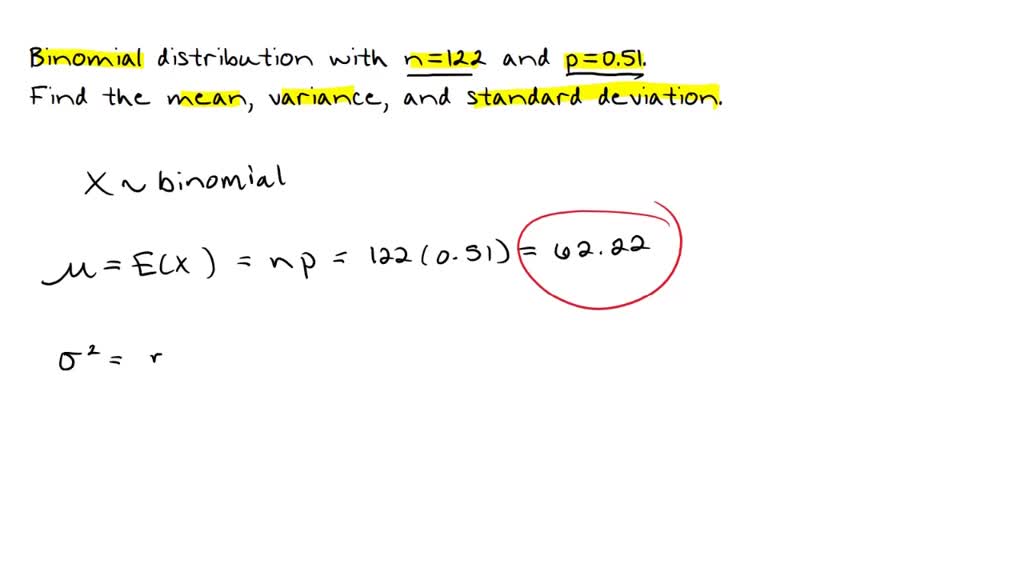 Binomial distribution with n=122 and p=0.51.
Find the mean, variance, and standard deviation.
X ~ binomial
μ = E(X) = np = 122(0.51) = 62.22
σ² = r